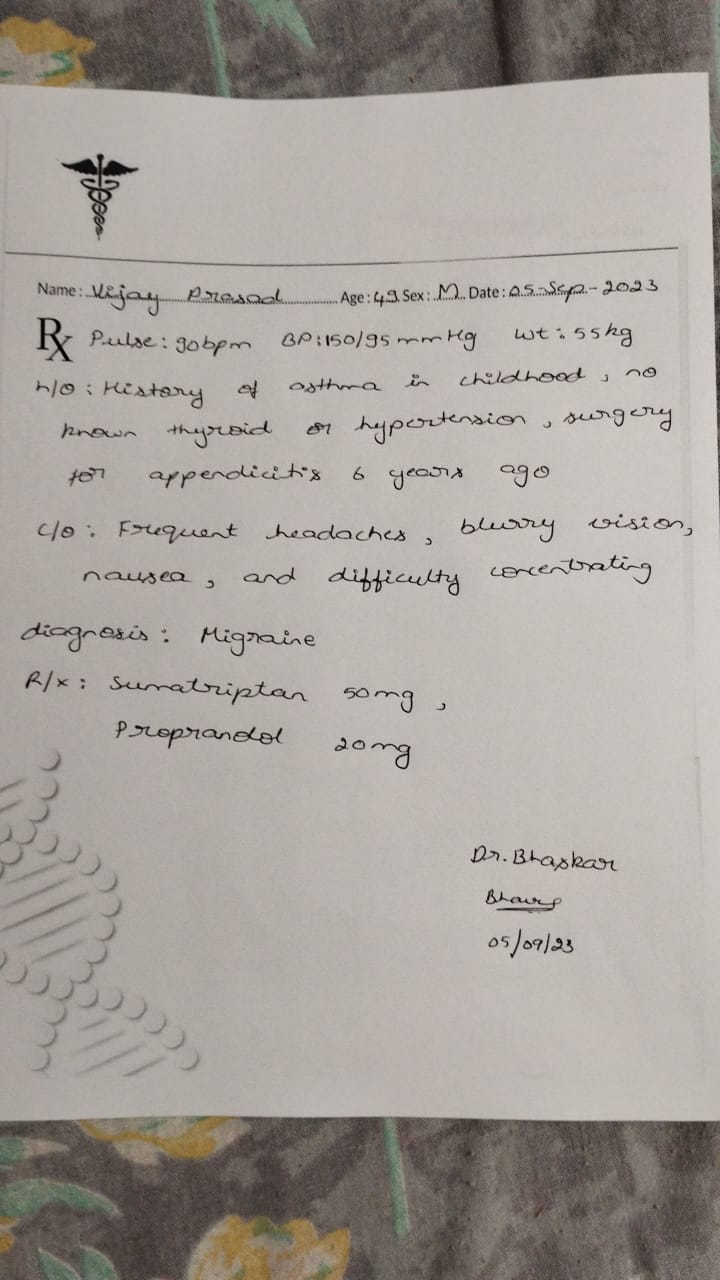 Name: Vijay Prasad Age: 49 Sex: M Date: 05-Sep-2023
Rx Pulse: 90bpm BP: 150/95 mmHg Wt: 55kg
h/o: History of asthma in childhood, no
known thyroid or hypertension, surgery
for appendicitis 6 years ago
c/o: Frequent headaches, blurry vision,
nausea, and difficulty concentrating
diagnosis: Migraine
R/x: Sumatriptan 50mg,
Propranolol 20mg
Dr. Bhaskar
05/09/23